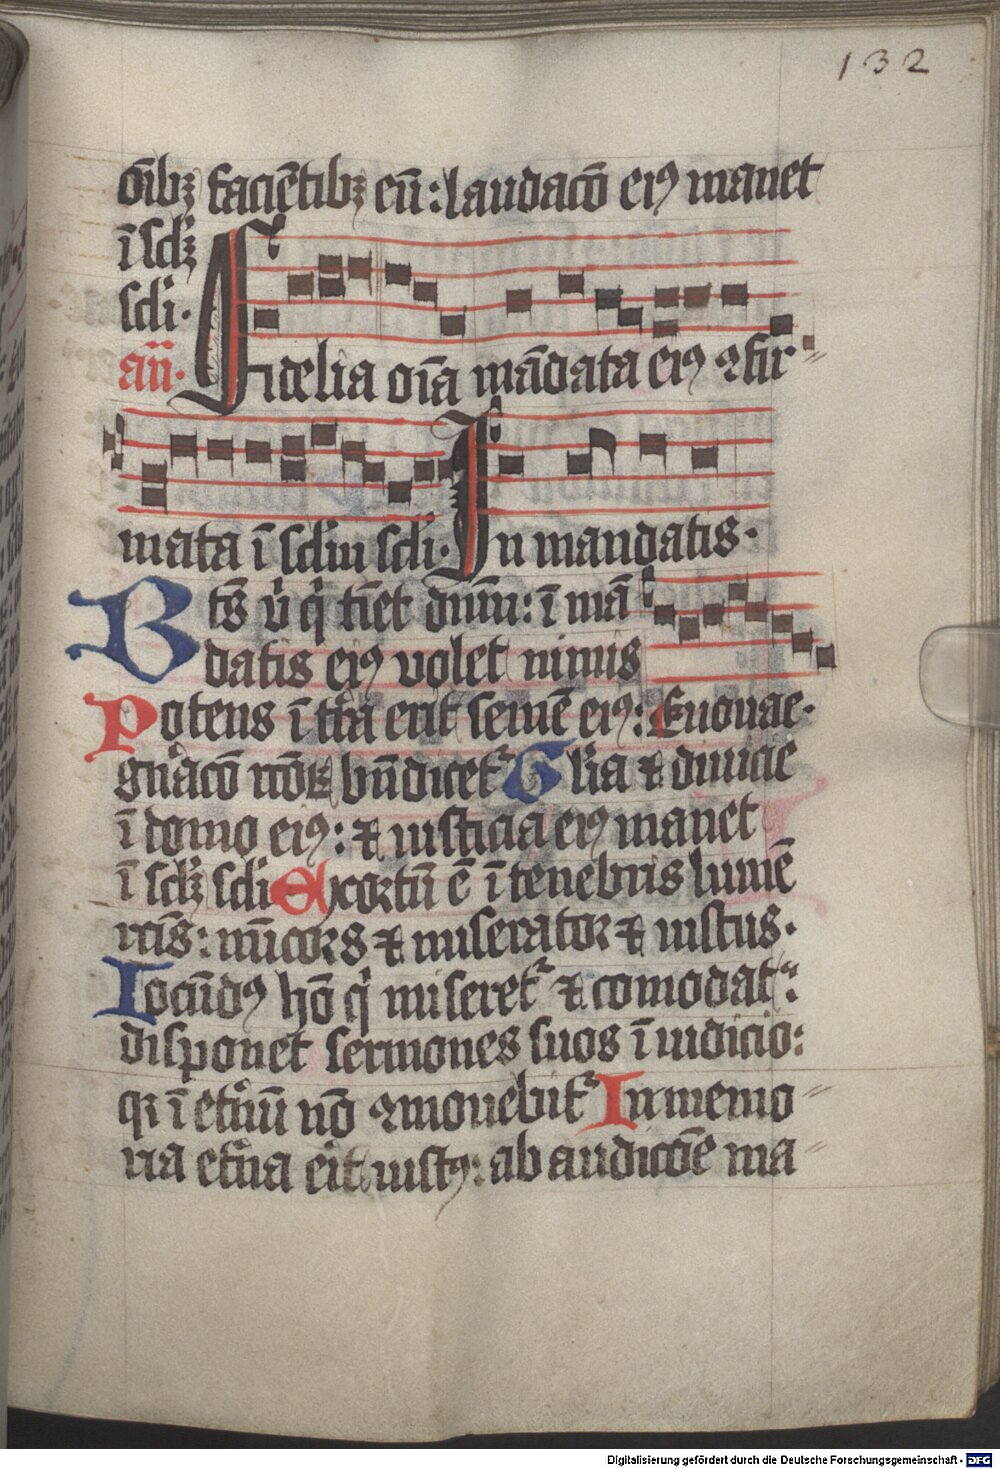 132
oı̄bꝫ facıē̄tıbꝫ eū: laudac̄o eıꝰ manet
ī sc̄lꝫ
sc̄lı·
an̄·
Fidelia oı̄a mādata eıꝰ ꝯfır⸗
mata ī sc̄lm sc̄lı· In mandatis·
Bt̄s v̓ q̓ tı̄et dn̄m: ī mā
datis eıꝰ volet nimis
Potens ī tr̄a erit semē eıꝰ: Euouae·
gn̓ac̄o rc̄oꝝ bn̄dicet᷑ Gl̓ia ⁊ diuicie
ī domo eıꝰ: ⁊ iusticia eıꝰ manet
ī sc̄lꝫ sc̄lı Exortū ē ī tenebris lumē
rc̄ıs: mı̄cors ⁊ miserator ⁊ iustus·
Iocūdꝰ hō q̓ miseret᷑ ⁊ comodat:
disponet sermones suos ī iudicio:
qꝛ ī et̓nū nō ꝯmouebit᷑ In memo⸗
ria et̓na erit iustꝰ: ab audic̄oē ma⸗
Digitalisierung gefördert durch die Deutsche Forschungsgemeinschaft · DFG